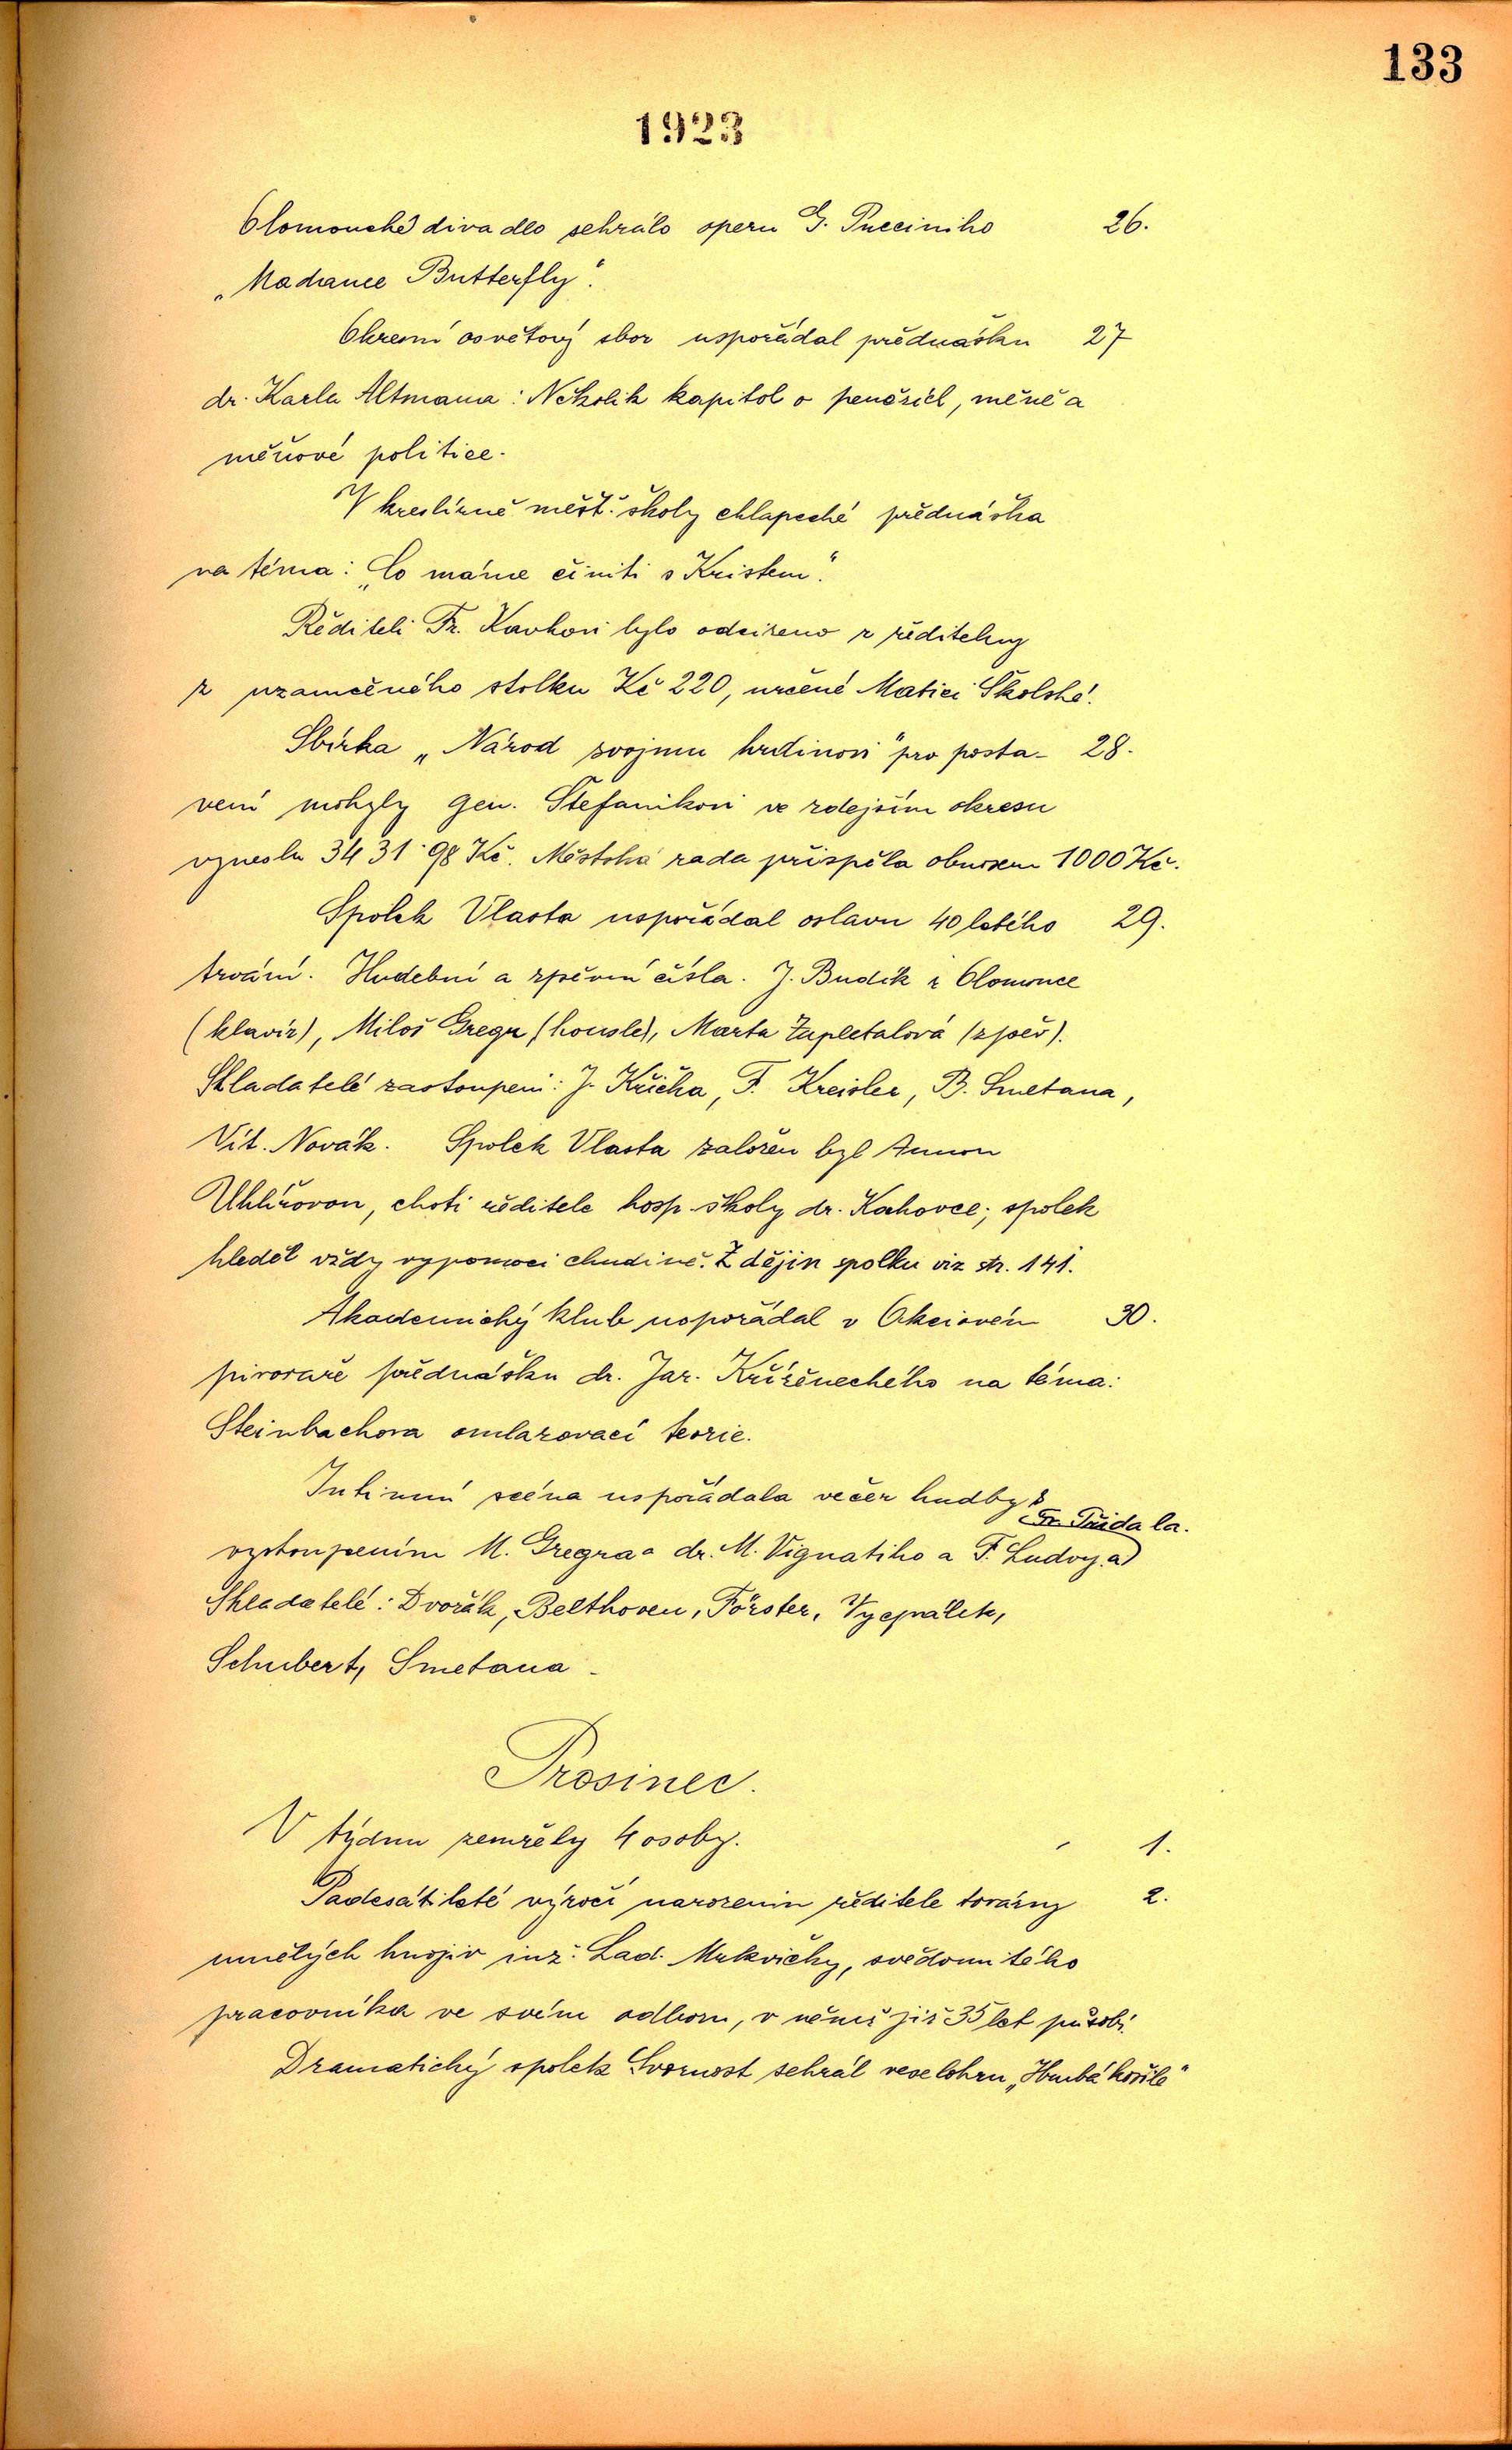 133
1923
Olomoucké divadlo sehrálo operu G. Pucciniho 26.
„Madame Butterfly“.
Okresní osvětový sbor uspořádal přednášku 27
dr. Karla Altmana: Několik kapitol o penězích, měně a
měnové politice.
V kreslírně měšť. školy chlapecké přednáška
na téma: „Co máme činiti s Kristem“.
Řediteli Fr. Kavkovi bylo odcizeno z ředitelny
z uzamčeného stolku Kč 220, určené Matici Školské.
Sbírka „Národ svojmu hrdinovi“ pro posta- 28.
vení mohyly gen. Štefanikovi ve zdejším okresu
vynesla 3431·98 Kč. Městská rada přispěla obnosem 1000 Kč.
Spolek Vlasta uspořádal oslavu 40letého 29.
trvání. Hudební a zpěvní čísla. J. Budík z Olomouce
(klavír), Miloš Gregr (housle), Marta Zapletalová (zpěv).
Skladatelé zastoupeni: J. Křička, F. Kreisler, B. Smetana,
Vít. Novák. Spolek Vlasta založen byl Annou
Uhlířovou, chotí ředitele hosp. školy dr. Kahovce; spolek
hleděl vždy vypomoci chudině. Z dějin spolku viz str. 141.
Akademický klub uspořádal v Akciovém 30.
pivovaře přednášku dr. Jar. Kříženeckého na téma:
Steinbachova omlazovací teorie.
Intimní scéna uspořádala večer hudby s
Fr. Třídala.
vystoupením M. Gregra a dr. M. Vignatiho a F. Ludvy a
Skladatelé: Dvořák, Beethoven, Förster, Vycpálek,
Schubert, Smetana.
Prosinec.
V týdnu zemřely 4 osoby. 1.
Padesátileté výročí narozenin ředitele továrny 2.
umělých hnojiv inž. Lad. Mrkvičky, svědomitého
pracovníka ve svém odboru, v němž již 35 let působí.
Dramatický spolek Svornost sehrál veselohru „Hrubá košile“